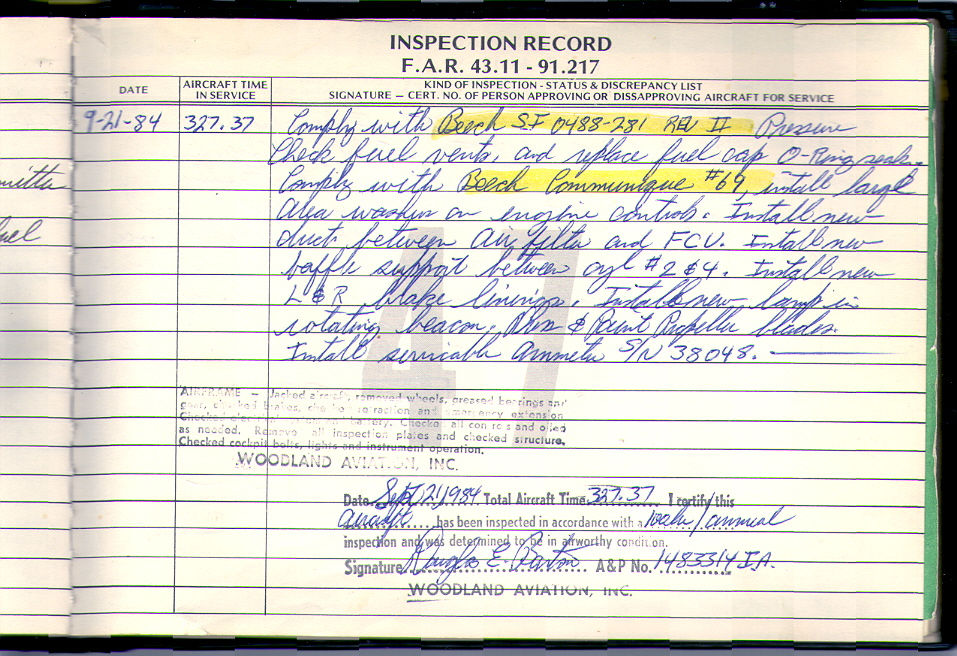 INSPECTION RECORD
F.A.R. 43.11 - 91.217
DATE
AIRCRAFT TIME
IN SERVICE
KIND OF INSPECTION - STATUS & DISCREPANCY LIST
SIGNATURE — CERT. NO. OF PERSON APPROVING OR DISSAPPROVING AIRCRAFT FOR SERVICE
9-21-84 327.37 Comply with Beech SI 0488-281 REV II Pressure
Check fuel vents, and replace fuel cap O-Ring seals.
Comply with Beech Communique #69, install large
area washer on engine controls. Install new
duct between air filter and FCU. Install new
baffle support between cyl #2 & 4. Install new
L & R brake linings. Install new lamp in
rotating beacon. Dress & Paint Propeller blades.
Install servicable Ammeter S/N 38048.
47
AIRFRAME — Jacked aircraft, removed wheels, greased bearings and
gear, checked brakes, checked retraction and emergency extension
Checked electrical battery. Checked all controls and oiled
as needed. Remove all inspection plates and checked structure.
Checked cockpit belts, lights and instrument operation.
WOODLAND AVIATION, INC.
Date Sept 21, 1984 Total Aircraft Time 327.37 I certify this
aircraft has been inspected in accordance with a 100hr/annual
inspection and was determined to be in airworthy condition.
Signature Douglas E. Barton A&P No. 1483314 IA.
WOODLAND AVIATION, INC.